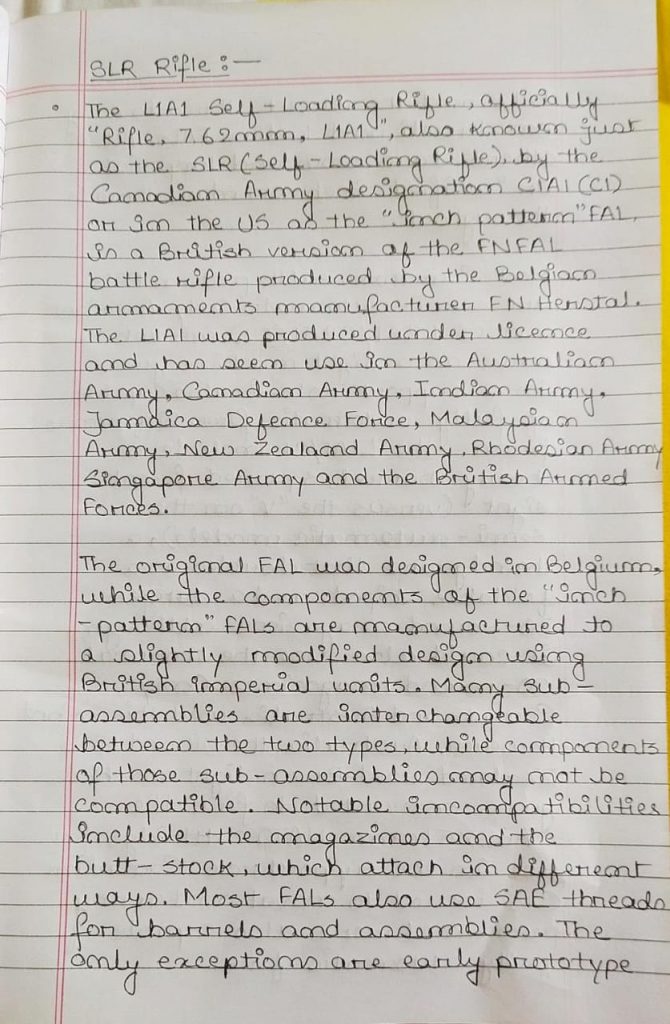 SLR Rifle :-
The L1A1 Self-Loading Rifle, officially
"Rifle, 7.62mm, L1A1", also known just
as the SLR (Self-Loading Rifle), by the
Canadian Army designation C1A1 (C1)
or in the US as the "inch pattern" FAL,
is a British version of the FN FAL
battle rifle produced by the Belgian
armaments manufacturer FN Herstal.
The L1A1 was produced under licence
and has seen use in the Australian
Army, Canadian Army, Indian Army,
Jamaica Defence Force, Malaysian
Army, New Zealand Army, Rhodesian Army
Singapore Army and the British Armed
Forces.
The original FAL was designed in Belgium,
while the components of the "inch
-pattern" FALs are manufactured to
a slightly modified design using
British imperial units. Many sub-
assemblies are interchangeable
between the two types, while components
of those sub-assemblies may not be
compatible. Notable incompatibilities
include the magazines and the
butt-stock, which attach in different
ways. Most FALs also use SAE threads
for barrels and assemblies. The
only exceptions are early prototype